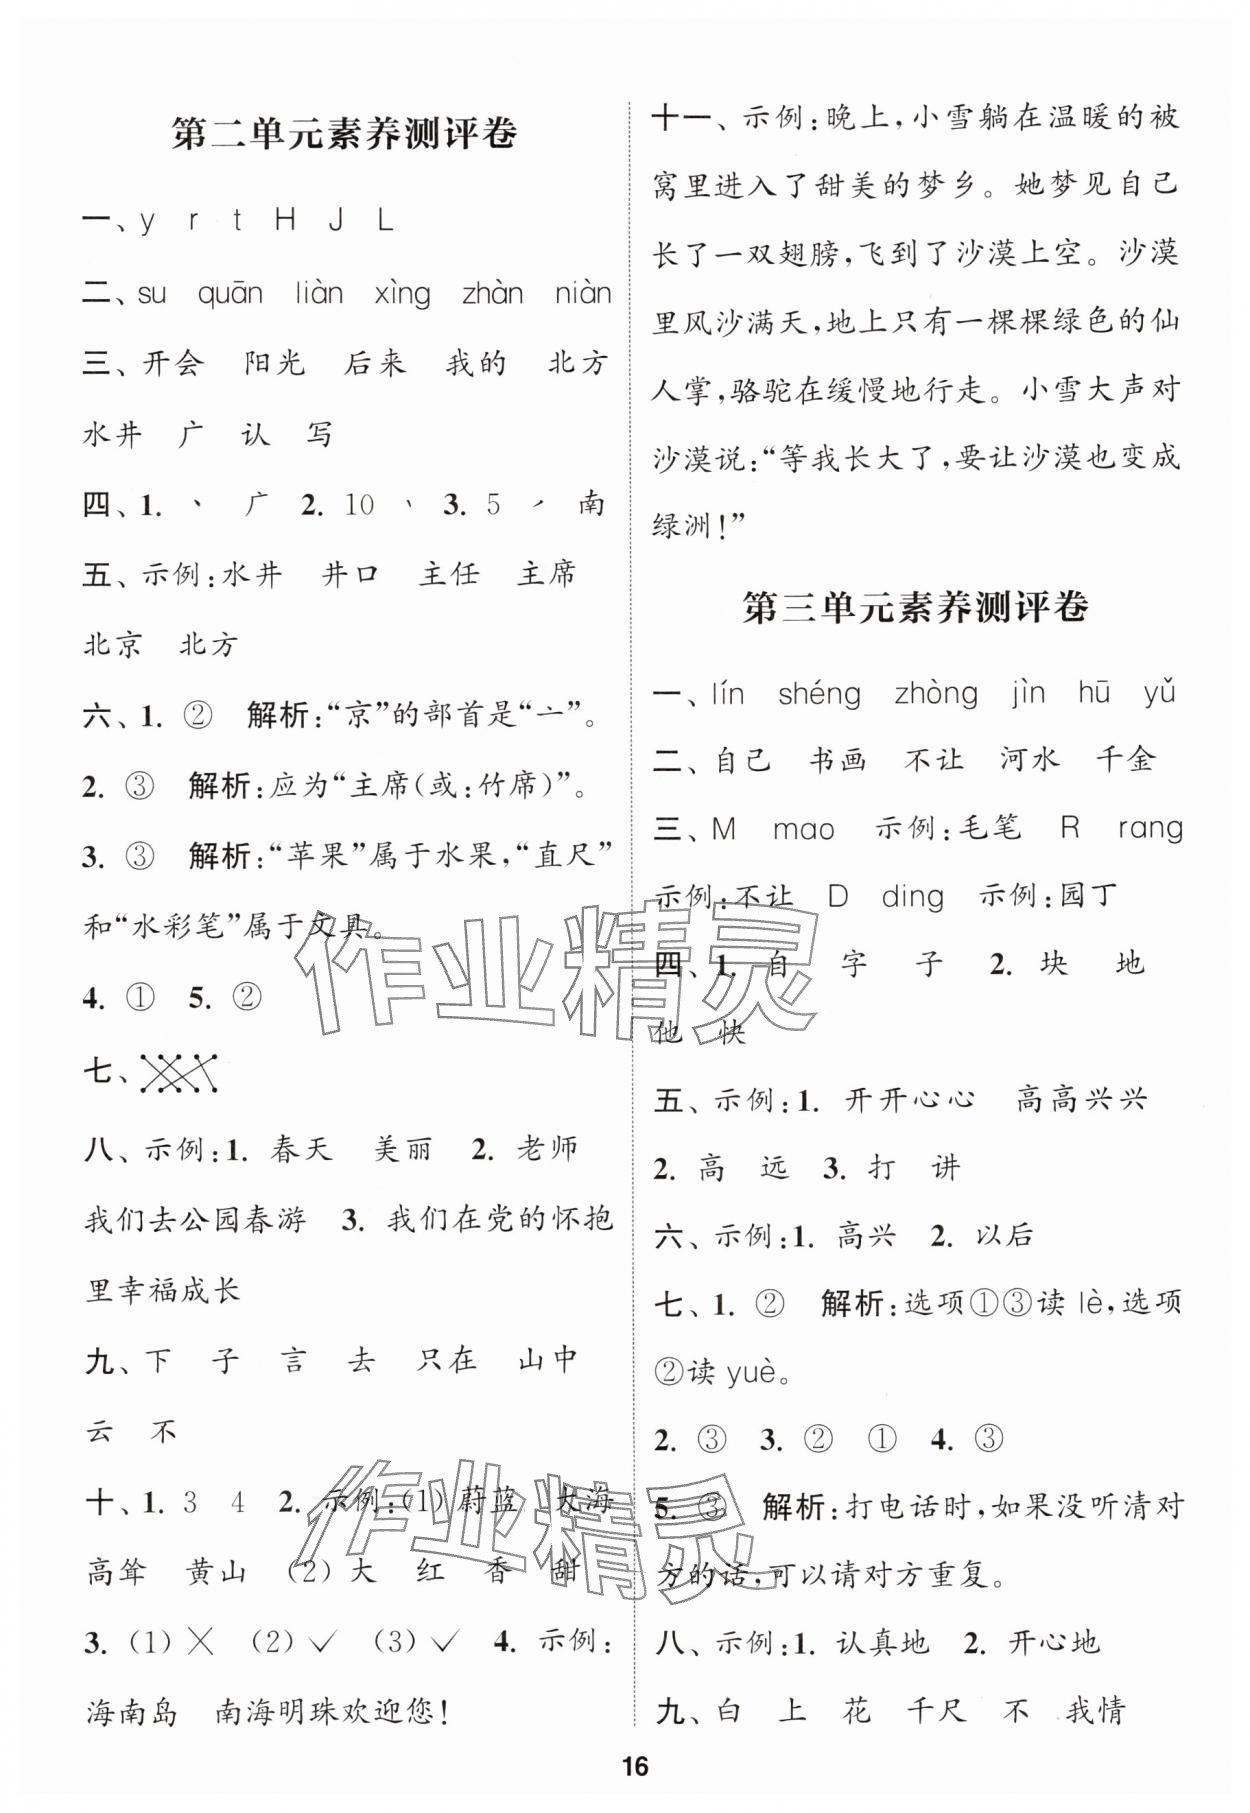 第二单元素养测评卷
一、y r t H J L
二、su quān liàn xìng zhàn niàn
三、开会 阳光 后来 我的 北方
水井 广 认 写
四、1. 丶 广 2. 10 丶 3. 5 ㇒ 南
五、示例:水井 井口 主任 主席
北京 北方
六、1. ② 解析:“京”的部首是“亠”。
2. ③ 解析:应为“主席(或:竹席)”。
3. ③ 解析:“苹果”属于水果,“直尺”
和“水彩笔”属于文具。
4. ① 5. ②
七、
八、示例:1. 春天 美丽 2. 老师
我们去公园春游 3. 我们在党的怀抱
里幸福成长
九、下 子 言 去 只在 山中
云 不
十、1. 3 4 2. 示例:(1)蔚蓝 大海
高耸 黄山 (2)大 红 香 甜
3. (1)╳ (2)✓ (3)✓ 4. 示例:
海南岛 南海明珠欢迎您!
十一、示例:晚上,小雪躺在温暖的被
窝里进入了甜美的梦乡。她梦见自己
长了一双翅膀,飞到了沙漠上空。沙漠
里风沙满天,地上只有一棵棵绿色的仙
人掌,骆驼在缓慢地行走。小雪大声对
沙漠说:“等我长大了,要让沙漠也变成
绿洲!”
第三单元素养测评卷
一、lín shéng zhòng jìn hū yǔ
二、自己 书画 不让 河水 千金
三、M mao 示例:毛笔 R rang
示例:不让 D ding 示例:园丁
四、1. 自 字 子 2. 块 地
他 快
五、示例:1. 开开心心 高高兴兴
2. 高 远 3. 打 讲
六、示例:1. 高兴 2. 以后
七、1. ② 解析:选项①③读 lè,选项
②读 yuè。
2. ③ 3. ② ① 4. ③
5. ③ 解析:打电话时,如果没听清对
方的话,可以请对方重复。
八、示例:1. 认真地 2. 开心地
九、白 上 花 千尺 不 我情
作业精灵
作业精灵
16